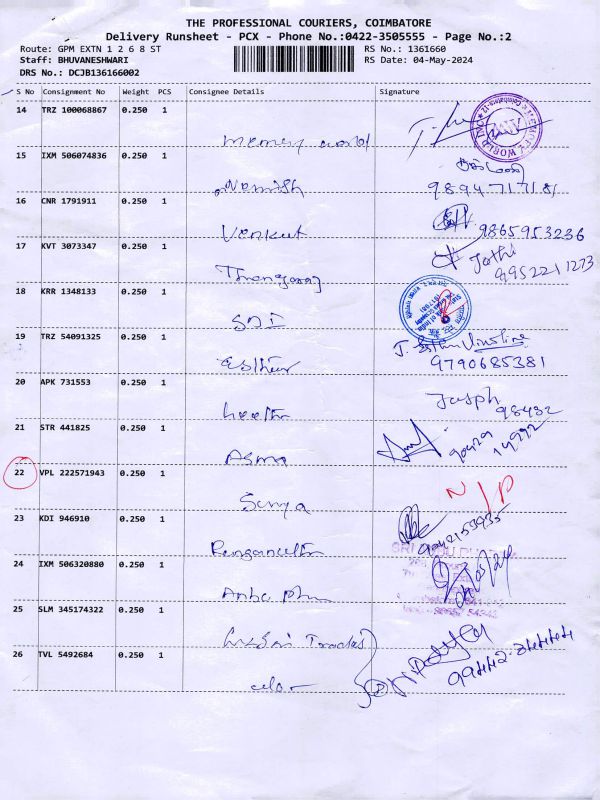 THE PROFESSIONAL COURIERS, COIMBATORE
Delivery Runsheet - PCX - Phone No.:0422-3505555 - Page No.:2
Route: GPM EXTN 1 2 6 8 ST
RS No.: 1361660
Staff: BHUVANESHWARI
RS Date: 04-May-2024
DRS No.: DCJB136166002
S No Consignment No Weight PCS Consignee Details Signature
14 TRZ 100068867 0.250 1
Memory world
15 IXM 506074836 0.250 1
Nemish
9894717181
16 CNR 1791911 0.250 1
Venkut 9865953236
17 KVT 3073347 0.250 1
Jothi
Thangaraj 9952211273
18 KRR 1348133 0.250 1
SBI
19 TRZ 54091325 0.250 1
J. Esther
Esther 9790685381
20 APK 731553 0.250 1
Jasph
98432
21 STR 441825 0.250 1
90429
14992
Asma
22 VPL 222571943 0.250 1
N/P
Surya
23 KDI 946910 0.250 1
9042153935
24 IXM 506320880 0.250 1
25 SLM 345174322 0.250 1
26 TVL 5492684 0.250 1